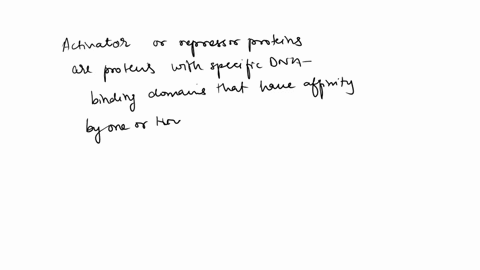 Activator or repressor proteins
are proteins with specific DNA-
binding domains that have affinity
by one or